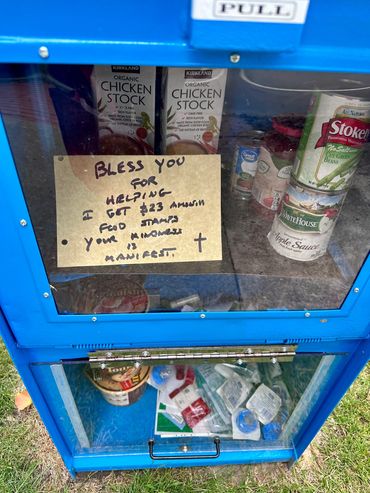 PULL
KIRKLAND
ORGANIC
CHICKEN
STOCK
KIRKLAND
ORGANIC
CHICKEN
STOCK
BLESS YOU
FOR
HELPING
I GET $23 A MONTH
FOOD STAMPS
YOUR KINDNESS
IS
MANIFEST.
No Salt
WHITE HOUSE
Apple Sauce